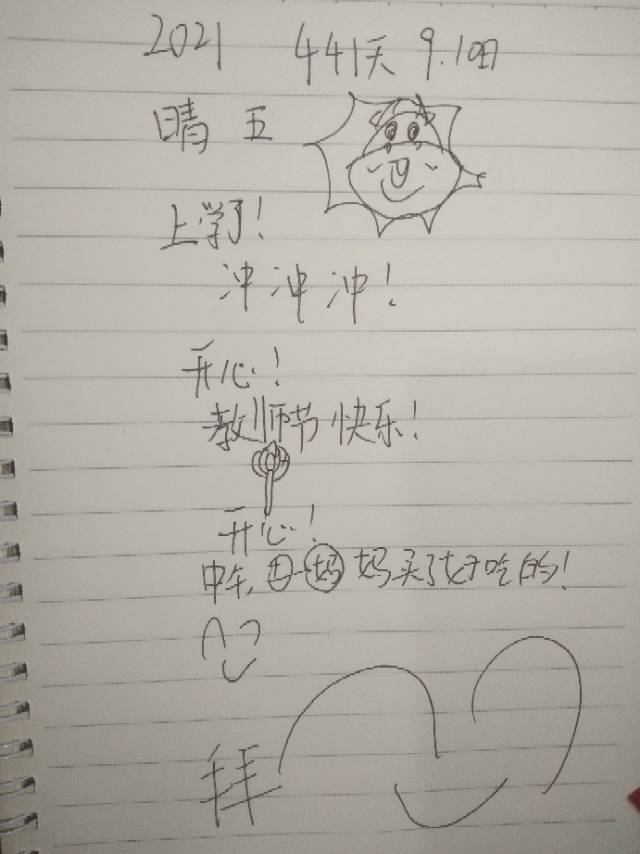 2021 441天 9.10日
晴 五
上学了!
冲冲冲!
开心!
教师节快乐!
开心!
中午,妈妈买了好吃的!
拜